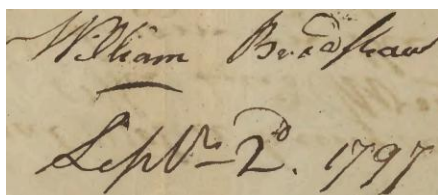 William Bradshaw
Septbr 2d. 1797